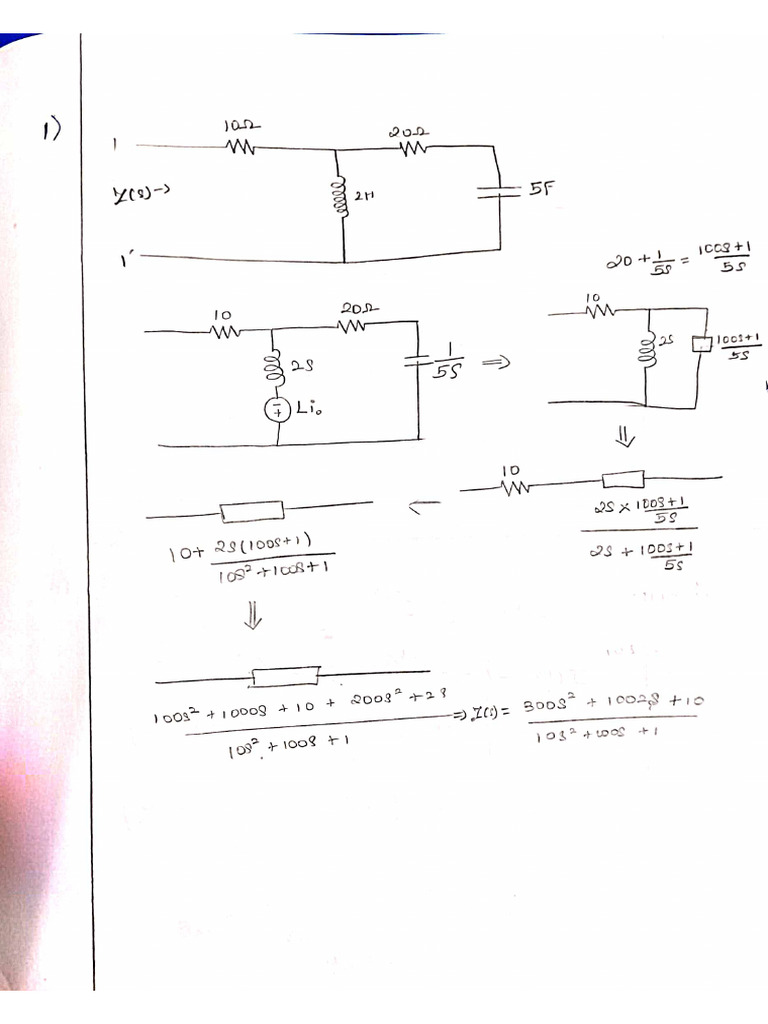 1)
10Ω 20Ω
1
Z(s)→ 2H 5F
1'
20 + 1/5S = 100S+1/5S
10 20Ω 10
2S 1/5S ⇒ 2S 100S+1/5S
- + Li₀
⇓
10
← 2S × 100S+1/5S / 2S + 100S+1/5S
10 + 2S(100S+1) / 10S² + 100S + 1
⇓
100S² + 1000S + 10 + 200S² + 2S / 10S² + 100S + 1 ⇒ Z(s) = 300S² + 1002S + 10 / 10S² + 100S + 1